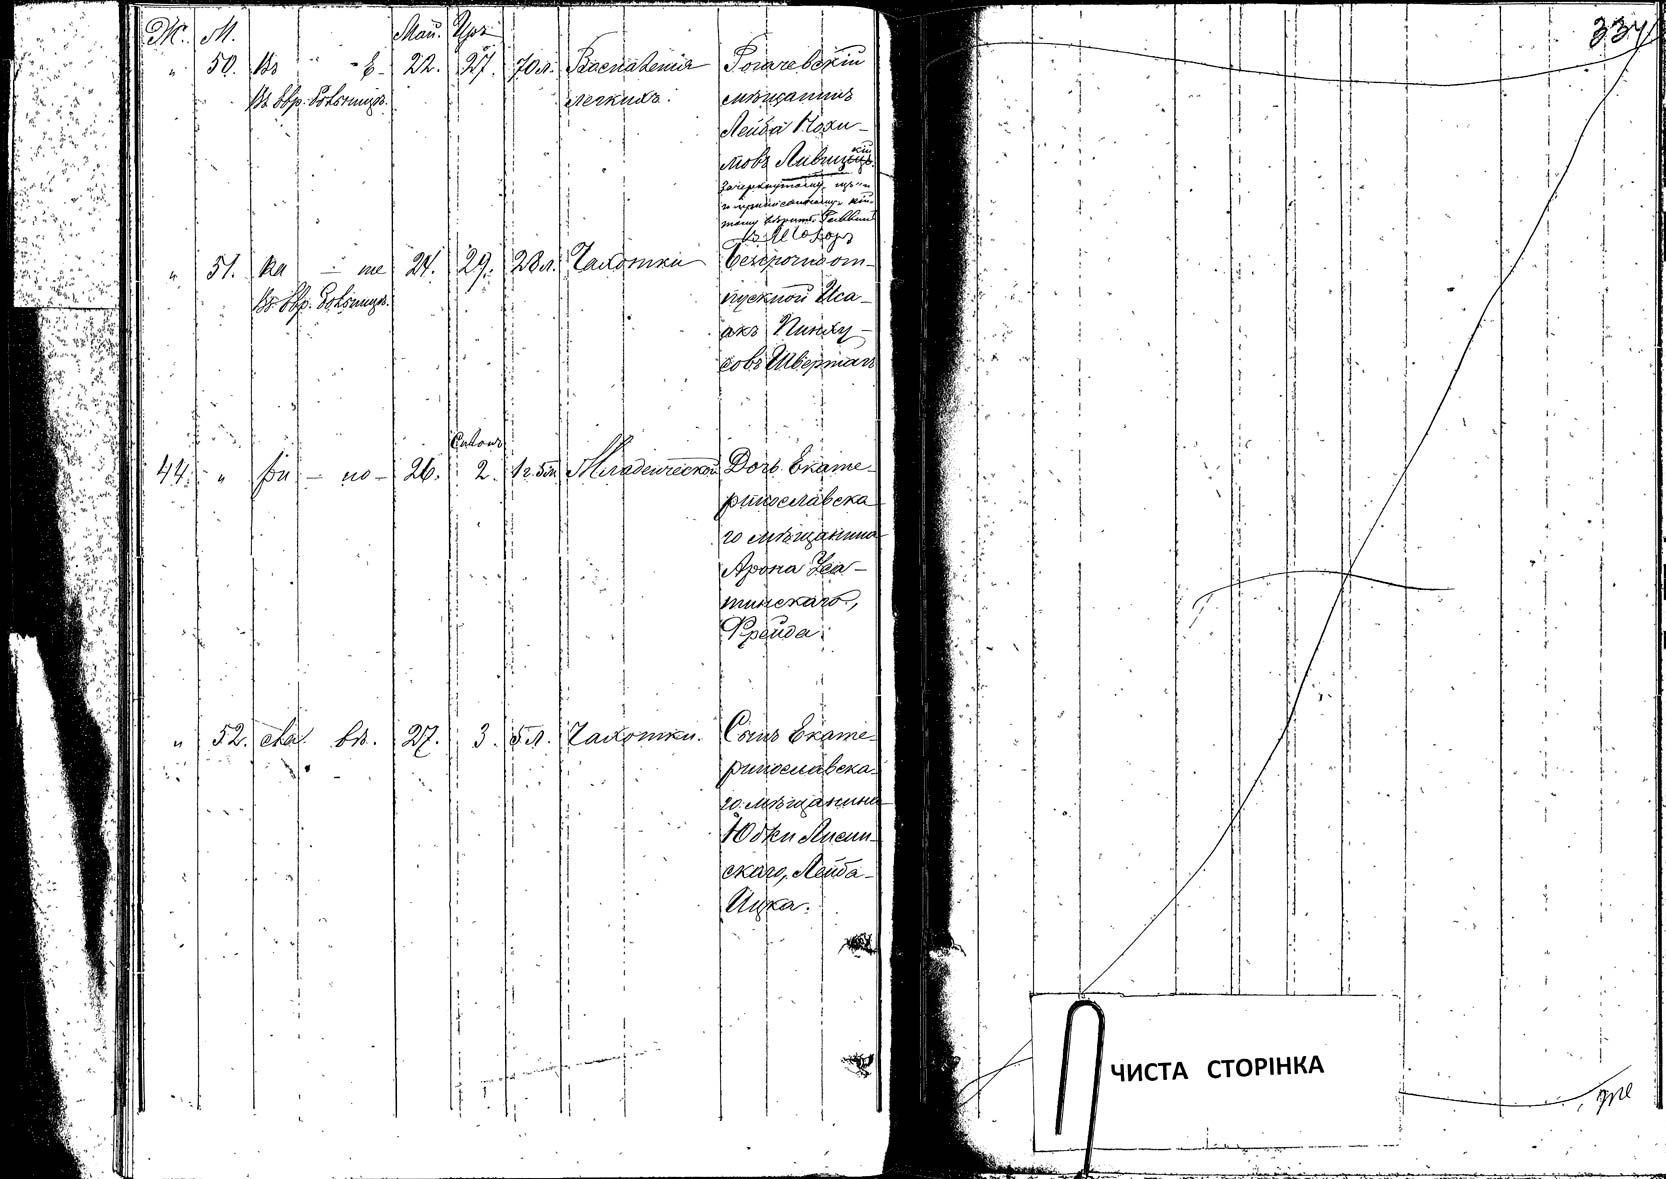 Ж. М. Май. Іяръ
" 50. Въ - Е- 22. 27. 70 л. Воспаленія Рогачевскій
Въ Евр. Больницѣ. легкихъ. мѣщанинъ
Лейба Нохи-
мовъ Лившицъ
кій
зачеркнутому
Раввинъ
" 51. ка - те 24. 29. 28 л. Чахотки Безсрочноот-
Въ Евр. Больницѣ. пускной Иса-
акъ Пинху-
совъ Швертагъ
Сивонъ
44. " ри - но - 26. 2. 1 г. 5 м. Младенческой Дочь Екате-
ринославска
го мѣщанина
Арона Уса-
тинскаго,
Фрейда.
" 52. сла. въ. 27. 3. 5 л. Чахотки. Сынъ Екате-
ринославска-
го мѣщанина
Юдки Лисин-
скаго, Лейба-
Ицка.
334
ЧИСТА СТОРІНКА